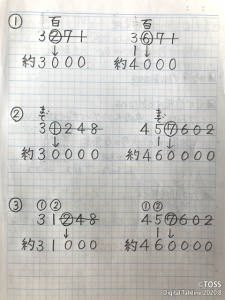 ① 百 百
3②71 3⑥71
↓ 1↓
約3000 約4000
②
3①248 45⑦602
↓ 1↓
約30000 約460000
③ ①② ①②
31②248 457602
約31000 約460000
©TOSS
Digital Takeline 2020.8